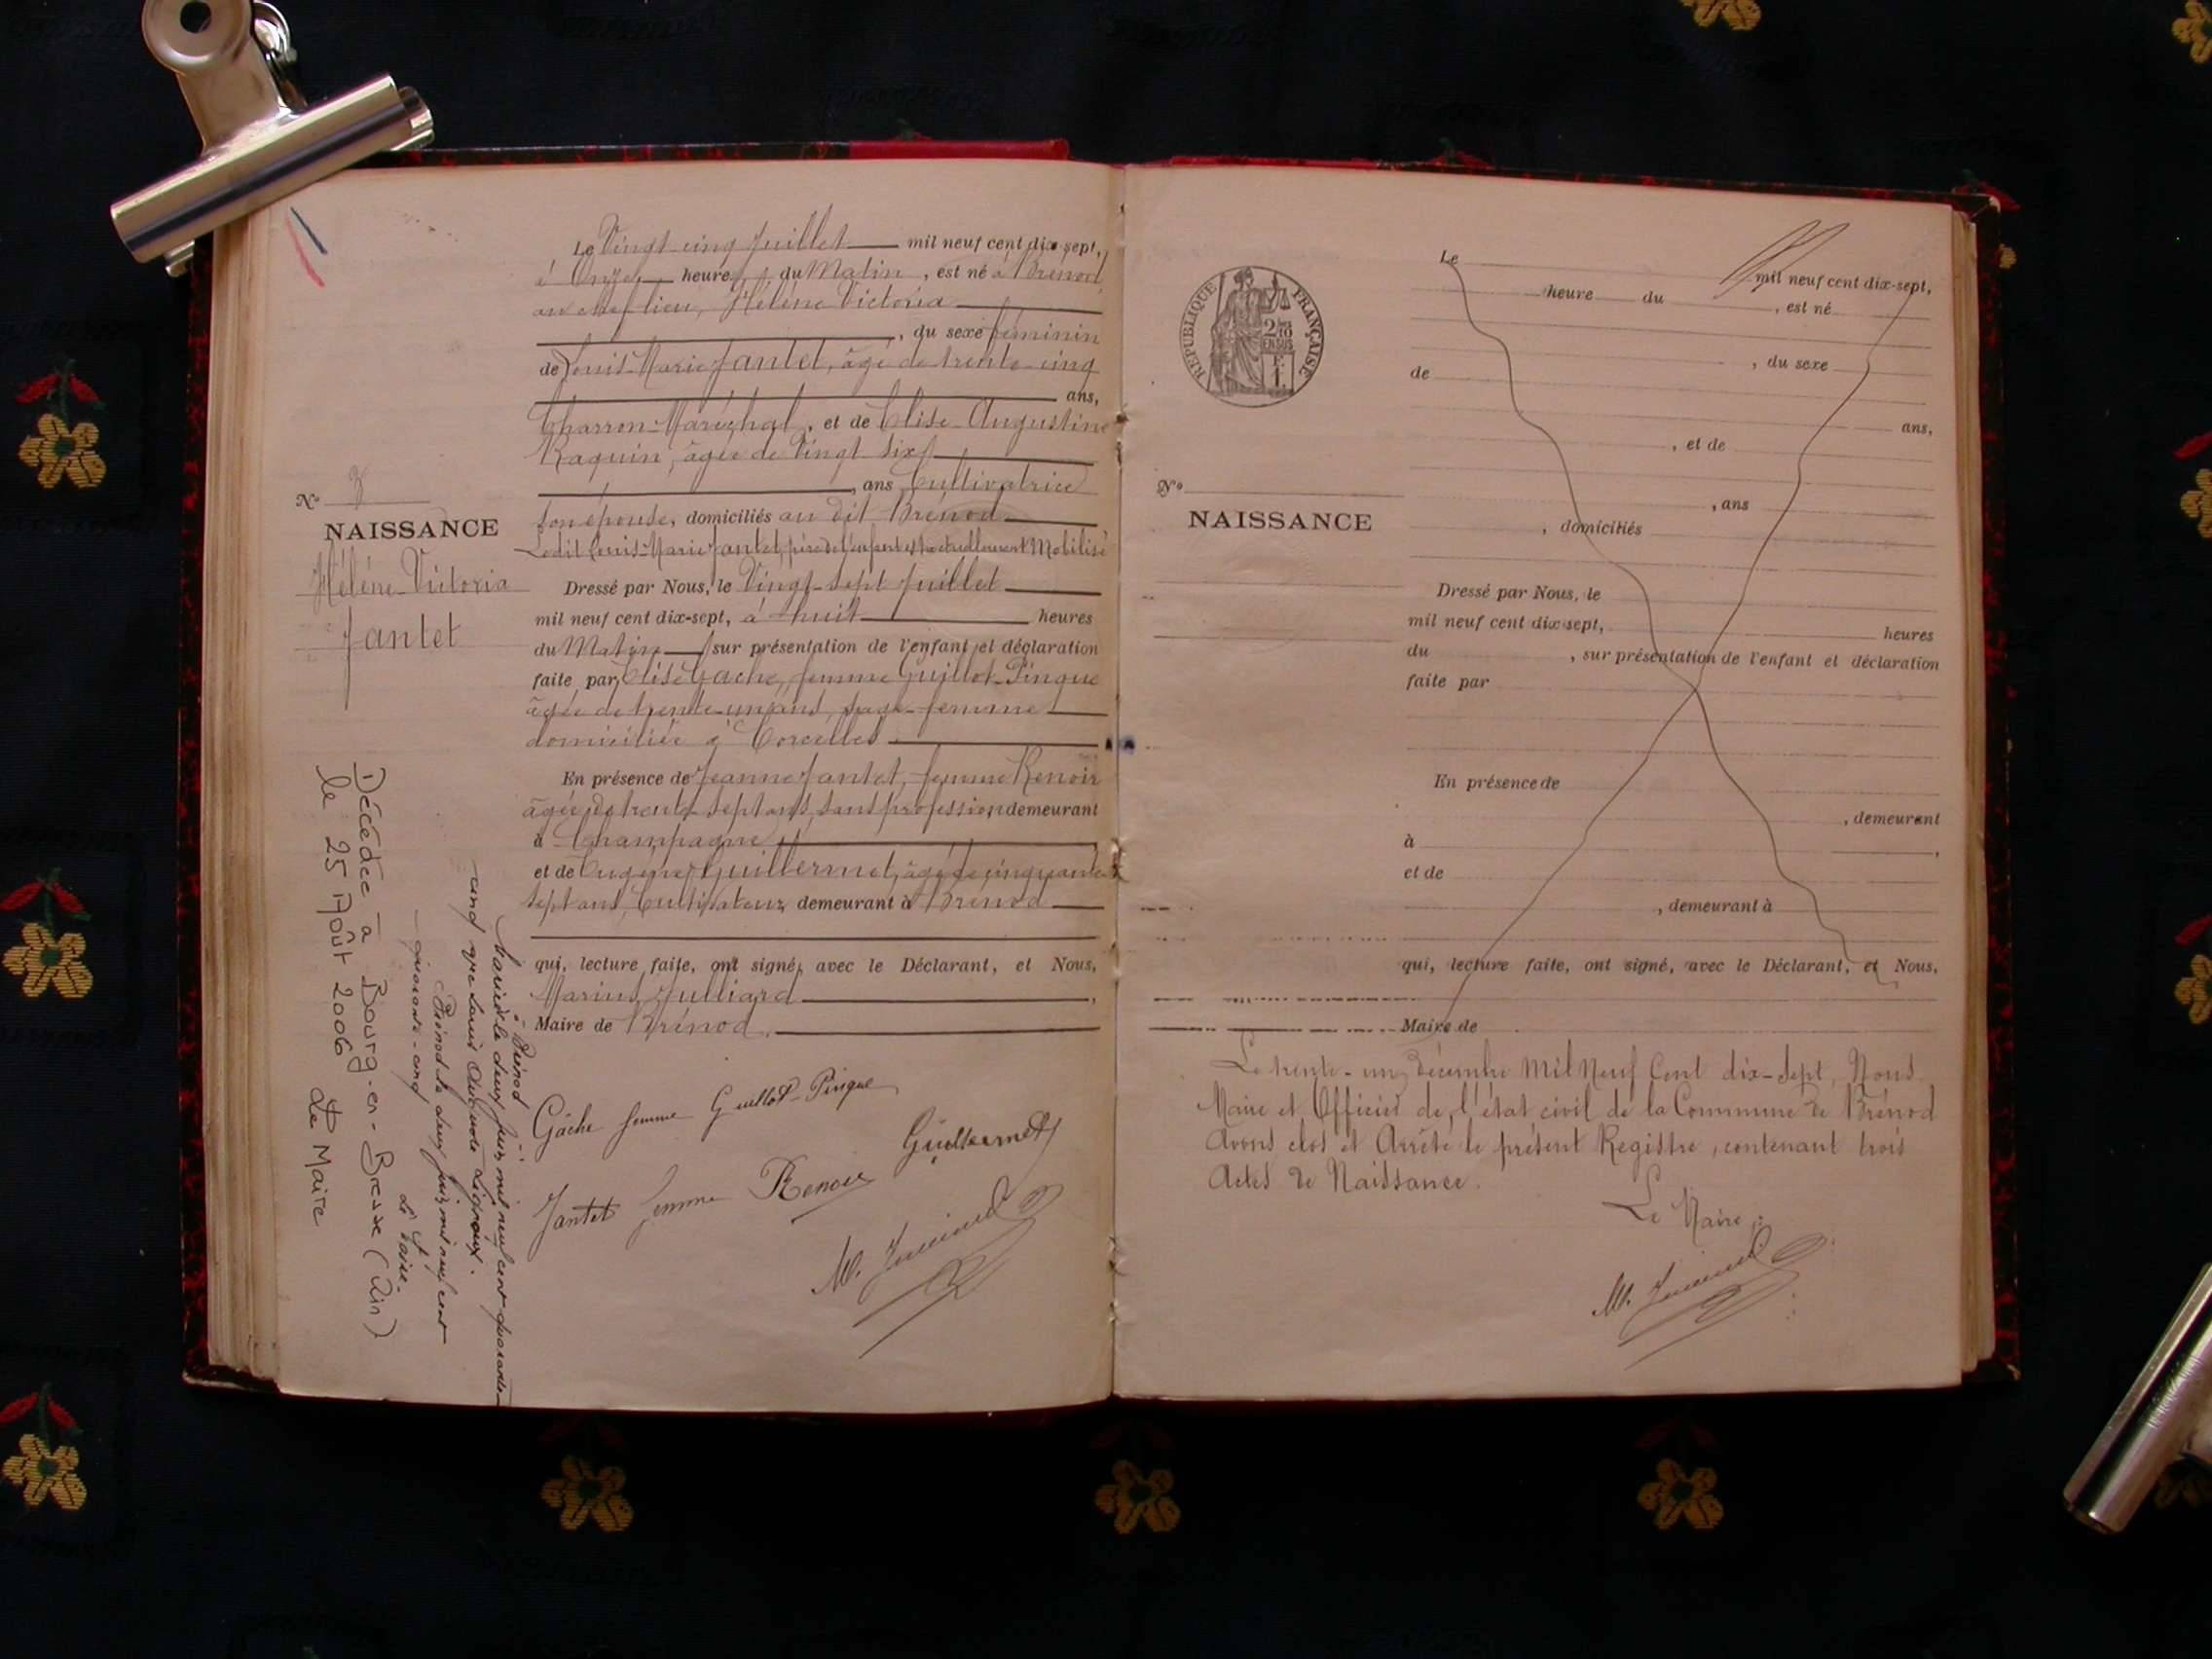 Le Vingt-cinq Juillet mil neuf cent dix-sept,
à Onze heures du Matin, est né à Brénod
au chef lieu, Hélène Victoria
, du sexe féminin
de Louis-Marie Jantet, âgé de trente-cinq
ans,
Charron-Maréchal, et de Elise-Augustine
Raquin, âgée de Vingt six
, ans Cultivatrice
son épouse, domiciliés au dit Brénod
Ledit Louis-Marie Jantet, père de l'enfant est actuellement Mobilisé
N° 3
NAISSANCE
Hélène-Victoria
Jantet
Dressé par Nous, le Vingt-sept Juillet
mil neuf cent dix-sept, à huit heures
du Matin sur présentation de l'enfant et déclaration
faite par Elise Gache, femme Guillot-Pingue
âgée de trente-un ans, sage-femme
domiciliée à Corcelles
En présence de Jeanne Jantet, femme Renoir
âgée de trente-sept ans, sans profession demeurant
à Champagne
et de Eugène Guillermet, âgé de cinquante
sept ans, Cultivateur demeurant à Brénod
qui, lecture faite, ont signé, avec le Déclarant, et Nous,
Marius Julliard
Maire de Brénod.
Gache femme Guillot-Pingue
Guillermet
Jantet femme Renoir
M. Julliard
à Brénod
Mariée le deux juin mil neuf cent quarante
cinq avec Louis
Brénod le deux juin mil neuf cent
quarante-cinq
Le Maire
Décédée à Bourg-en-Bresse (Ain)
le 25 Août 2006 Le Maire
REPUBLIQUE FRANÇAISE
Le mil neuf cent dix-sept,
heure du , est né
, du sexe
de
ans,
, et de
, ans
N°
NAISSANCE
, domiciliés
Dressé par Nous, le
mil neuf cent dix-sept, heures
du , sur présentation de l'enfant et déclaration
faite par
En présence de
, demeurant
à ,
et de
, demeurant à
qui, lecture faite, ont signé, avec le Déclarant, et Nous,
Maire de
Le trente-un Décembre Mil Neuf Cent dix-sept, Nous
Maire et Officier de l'état civil de la Commune de Brénod
Avons clos et Arrêté le présent Registre, contenant trois
Actes de Naissance.
Le Maire:
M. Julliard